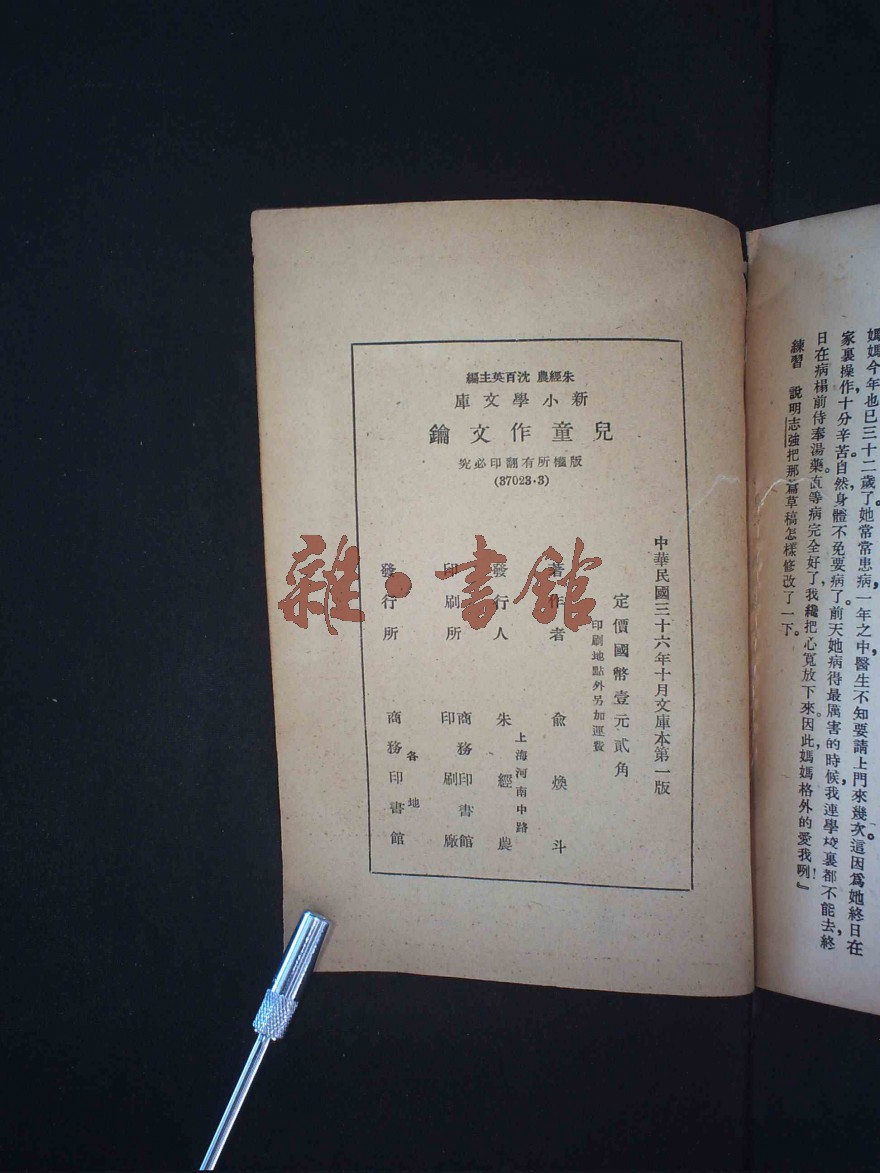 媽媽今年也已三十二歲了。她常常患病一年之中,醫生不知要請上門來幾次。這因爲她終日在
家裏操作,十分辛苦自然,身體不免要病了。前天她病得最厲害的時候,我連學校裏都不能去,終
日在病榻前侍奉湯藥,直等病完全好了,我纔把心寬放下來。因此,媽媽格外的愛我咧!』
練習 說明志強把那篇草稿怎樣修改了一下。
朱經農 沈百英主編
新小學文庫
兒童作文鑰
版權所有翻印必究
(37023·3)
中華民國三十六年十月文庫本第一版
定價國幣壹元貳角
印刷地點外另加運費
著作者 俞煥斗
發行人 上海河南中路 朱經農
印刷所 商務印書館印刷廠
發行所 各地 商務印書館
雜·書館